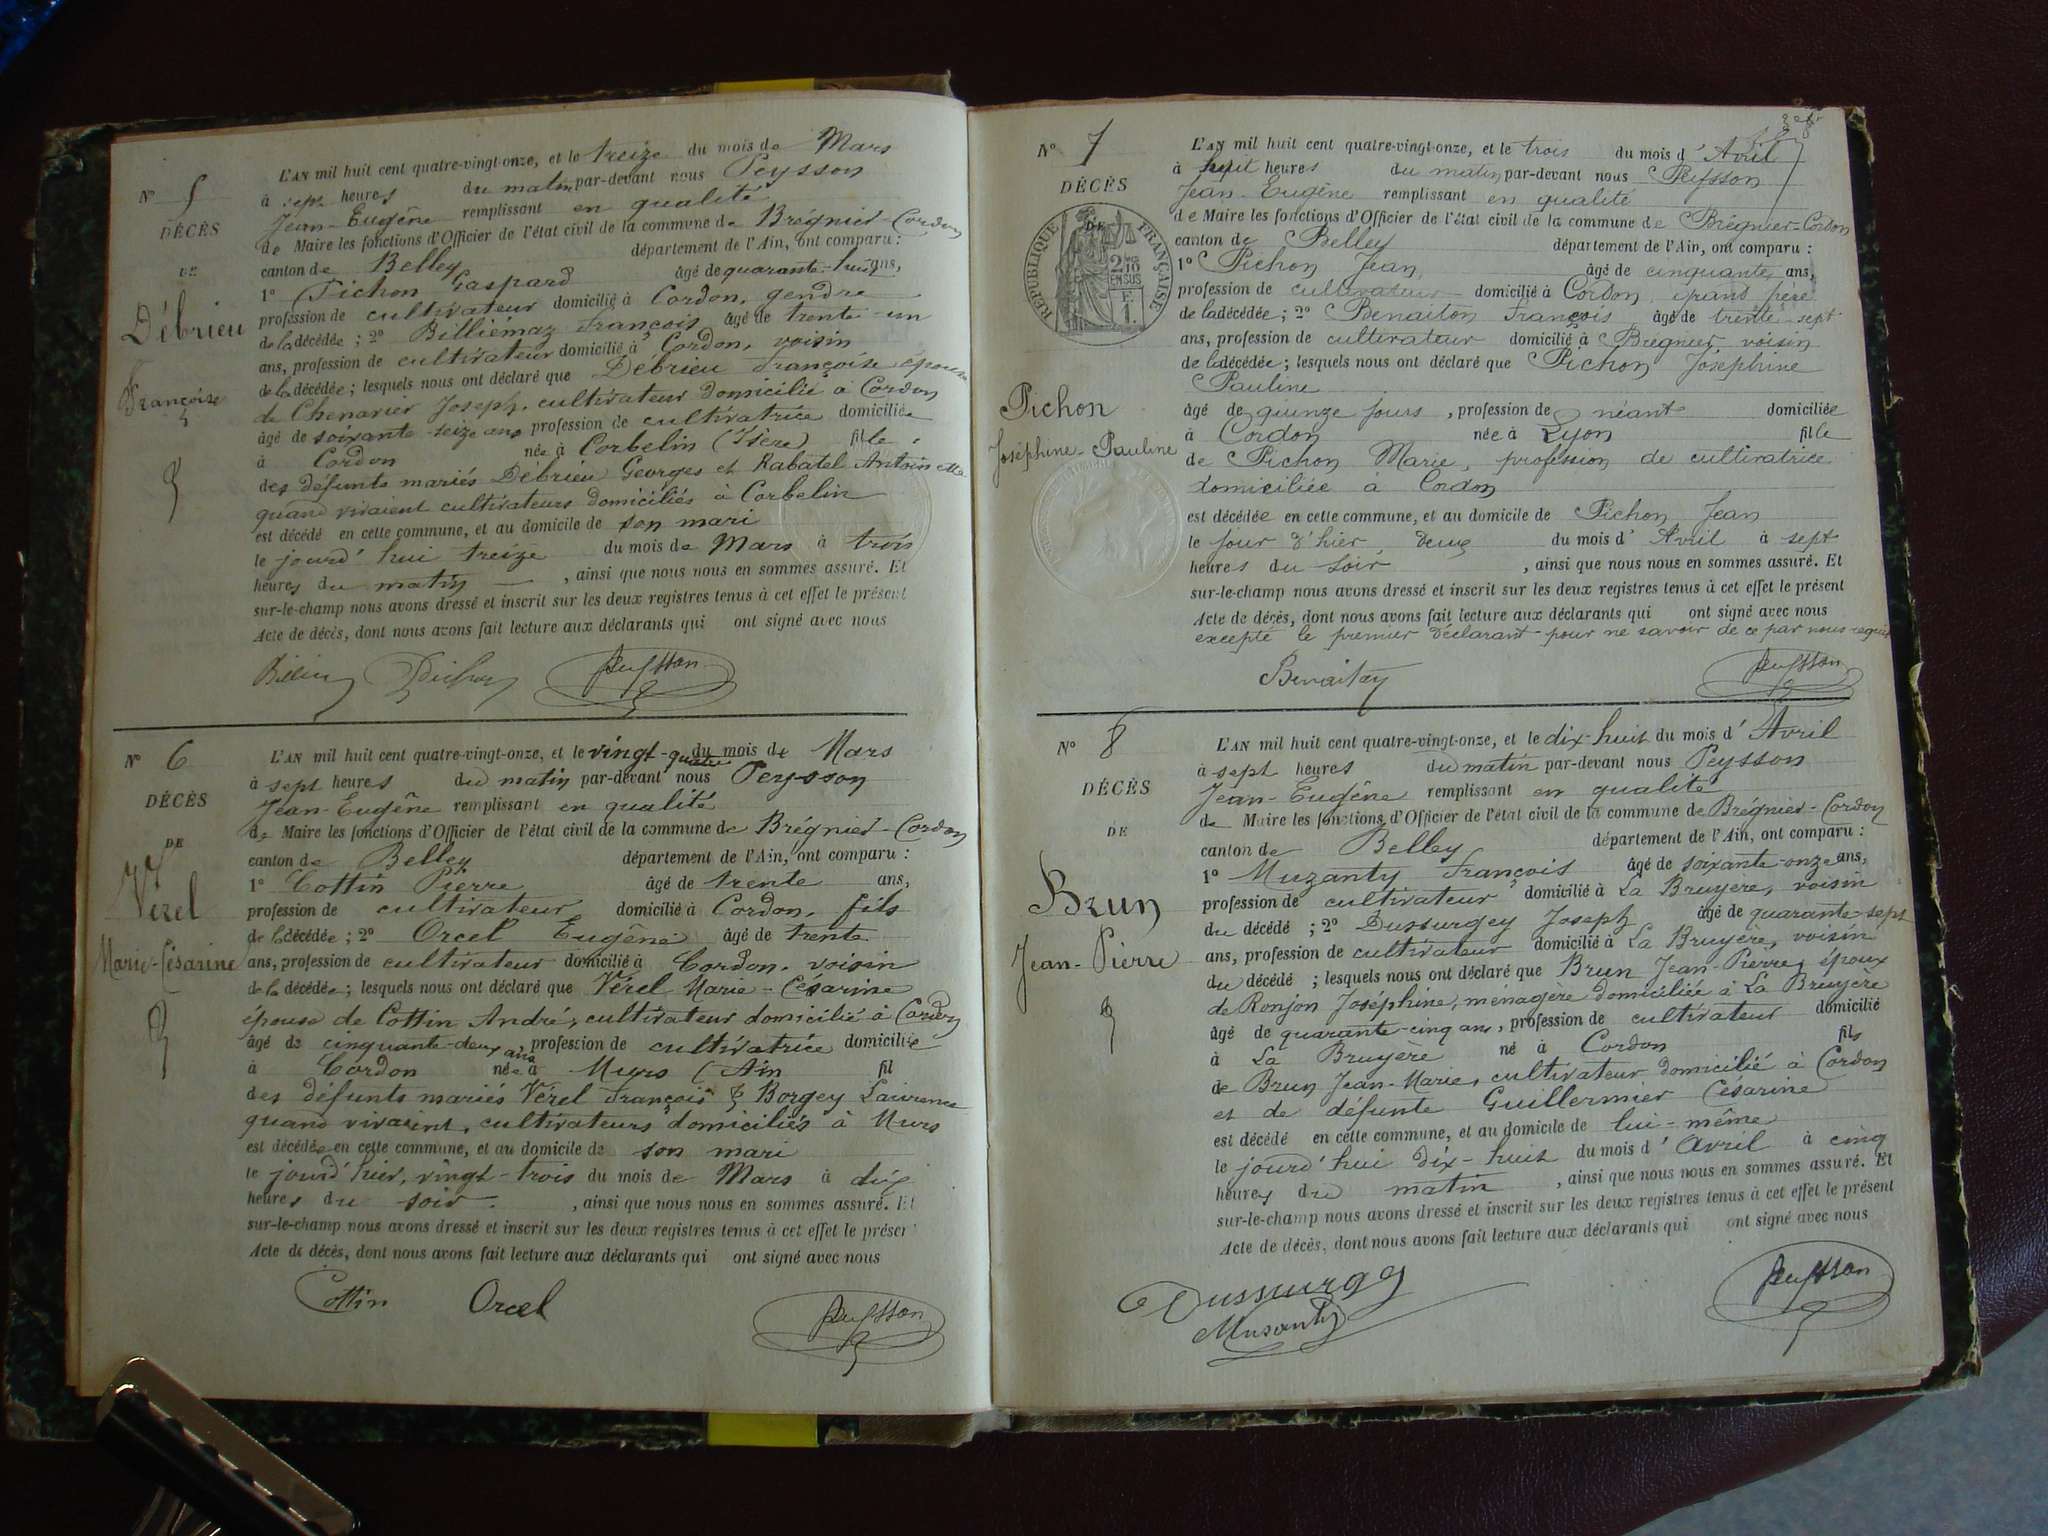 N° 5
DÉCÈS
DE
Débrieu
Françoise
L'AN mil huit cent quatre-vingt-onze, et le treize du mois de Mars
à sept heures du matin par-devant nous Peysson
Jean-Eugène remplissant en qualité
de Maire les fonctions d'Officier de l'état civil de la commune de Brégnier-Cordon
canton de Belley département de l'Ain, ont comparu :
1° Pichon Gaspard âgé de quarante-huit ans,
profession de cultivateur domicilié à Cordon, gendre
de la décédée ; 2° Billiémaz François âgé de trente-un
ans, profession de cultivateur domicilié à Cordon, voisin
de la décédée ; lesquels nous ont déclaré que Débrieu Françoise épouse
de Chenavier Joseph, cultivateur domicilié à Cordon
âgé de soixante-seize ans profession de cultivatrice domiciliée
à Cordon née à Corbelin (Isère) fille
des défunts mariés Débrieu Georges et Rabatel Antoinette
quand vivaient cultivateurs domiciliés à Corbelin
est décédé en cette commune, et au domicile de son mari
le jourd'hui treize du mois de Mars à trois
heures du matin , ainsi que nous nous en sommes assuré. Et
sur-le-champ nous avons dressé et inscrit sur les deux registres tenus à cet effet le présent
Acte de décès, dont nous avons fait lecture aux déclarants qui ont signé avec nous
Peysson
N° 6
DÉCÈS
DE
Vérel
Marie-Césarine
L'AN mil huit cent quatre-vingt-onze, et le vingt-quatre du mois de Mars
à sept heures du matin par-devant nous Peysson
Jean-Eugène remplissant en qualité
de Maire les fonctions d'Officier de l'état civil de la commune de Brégnier-Cordon
canton de Belley département de l'Ain, ont comparu :
1° Cottin Pierre âgé de trente ans,
profession de cultivateur domicilié à Cordon, fils
de la décédée ; 2° Orcel Eugène âgé de trente
ans, profession de cultivateur domicilié à Cordon, voisin
de la décédée ; lesquels nous ont déclaré que Vérel Marie-Césarine
épouse de Cottin André, cultivateur domicilié à Cordon
âgé de cinquante-deux ans profession de cultivatrice domiciliée
à Cordon née à Murs (Ain fil
des défunts mariés Vérel François & Borgey Laurence
quand vivaient, cultivateurs domiciliés à Murs
est décédée en cette commune, et au domicile de son mari
le jourd'hier, vingt-trois du mois de Mars à dix
heures du soir , ainsi que nous nous en sommes assuré. Et
sur-le-champ nous avons dressé et inscrit sur les deux registres tenus à cet effet le présent
Acte de décès, dont nous avons fait lecture aux déclarants qui ont signé avec nous
Cottin Orcel Peysson
N° 7
DÉCÈS
DE
RÉPUBLIQUE FRANÇAISE
Pichon
Joséphine-Pauline
L'AN mil huit cent quatre-vingt-onze, et le trois du mois d'Avril
à sept heures du matin par-devant nous Peysson
Jean-Eugène remplissant en qualité
de Maire les fonctions d'Officier de l'état civil de la commune de Brégnier-Cordon
canton de Belley département de l'Ain, ont comparu :
1° Pichon Jean, âgé de cinquante ans,
profession de cultivateur domicilié à Cordon, grand père
de la décédée ; 2° Benaiton François âgé de trente-sept
ans, profession de cultivateur domicilié à Brégnier voisin
de la décédée ; lesquels nous ont déclaré que Pichon Joséphine
Pauline
âgé de quinze jours , profession de néant domiciliée
à Cordon née à Lyon fille
de Pichon Marie, profession de cultivatrice
domiciliée à Cordon
est décédée en cette commune, et au domicile de Pichon Jean
le jour d'hier, deux du mois d'Avril à sept
heures du soir , ainsi que nous nous en sommes assuré. Et
sur-le-champ nous avons dressé et inscrit sur les deux registres tenus à cet effet le présent
Acte de décès, dont nous avons fait lecture aux déclarants qui ont signé avec nous
excepté le premier déclarant pour ne savoir de ce par nous requis
Peysson
N° 8
DÉCÈS
DE
Brun
Jean-Pierre
L'AN mil huit cent quatre-vingt-onze, et le dix-huit du mois d'Avril
à sept heures du matin par-devant nous Peysson
Jean-Eugène remplissant en qualité
de Maire les fonctions d'Officier de l'état civil de la commune de Brégnier-Cordon
canton de Belley département de l'Ain, ont comparu :
1° Muzanty François âgé de soixante-onze ans,
profession de cultivateur domicilié à La Bruyère, voisin
du décédé ; 2° Dussurgey Joseph âgé de quarante-sept
ans, profession de cultivateur domicilié à La Bruyère, voisin
du décédé ; lesquels nous ont déclaré que Brun Jean-Pierre, époux
de Ronjon Joséphine, ménagère domiciliée à La Bruyère
âgé de quarante-cinq ans, profession de cultivateur domicilié
à La Bruyère né à Cordon fils
de Brun Jean-Marie, cultivateur domicilié à Cordon
et de défunte Guillermier Césarine
est décédé en cette commune, et au domicile de lui-même
le jourd'hui dix-huit du mois d'Avril à cinq
heures du matin , ainsi que nous nous en sommes assuré. Et
sur-le-champ nous avons dressé et inscrit sur les deux registres tenus à cet effet le présent
Acte de décès, dont nous avons fait lecture aux déclarants qui ont signé avec nous
Dussurgey Peysson
Musanty